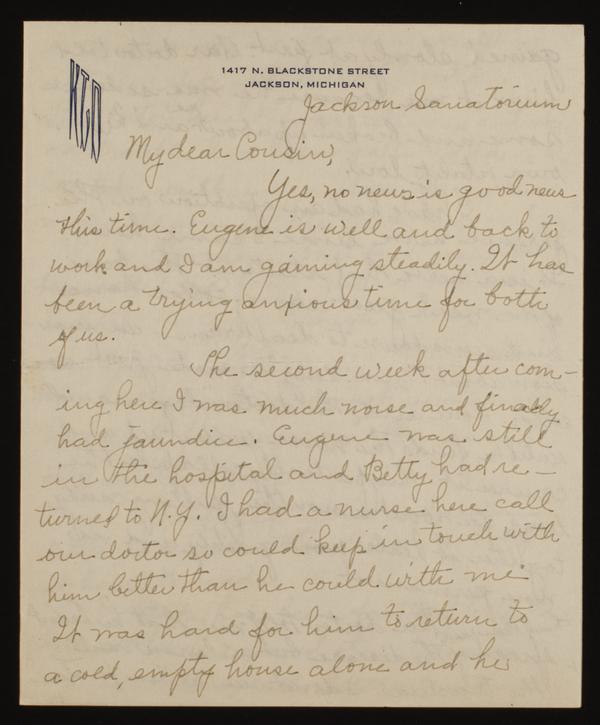 KTD
1417 N. BLACKSTONE STREET
JACKSON, MICHIGAN
Jackson Sanatorium
My dear Cousin,
Yes, no news is good news
this time. Eugene is well and back to
work and I am gaining steadily. It has
been a trying anxious time for both
of us.
The second week after com-
ing here I was much worse and finally
had jaundice. Eugene was still
in the hospital and Betty had re-
turned to N.Y. I had a nurse here call
our doctor so could keep in touch with
him better than he could with me
It was hard for him to return to
a cold, empty house alone and he